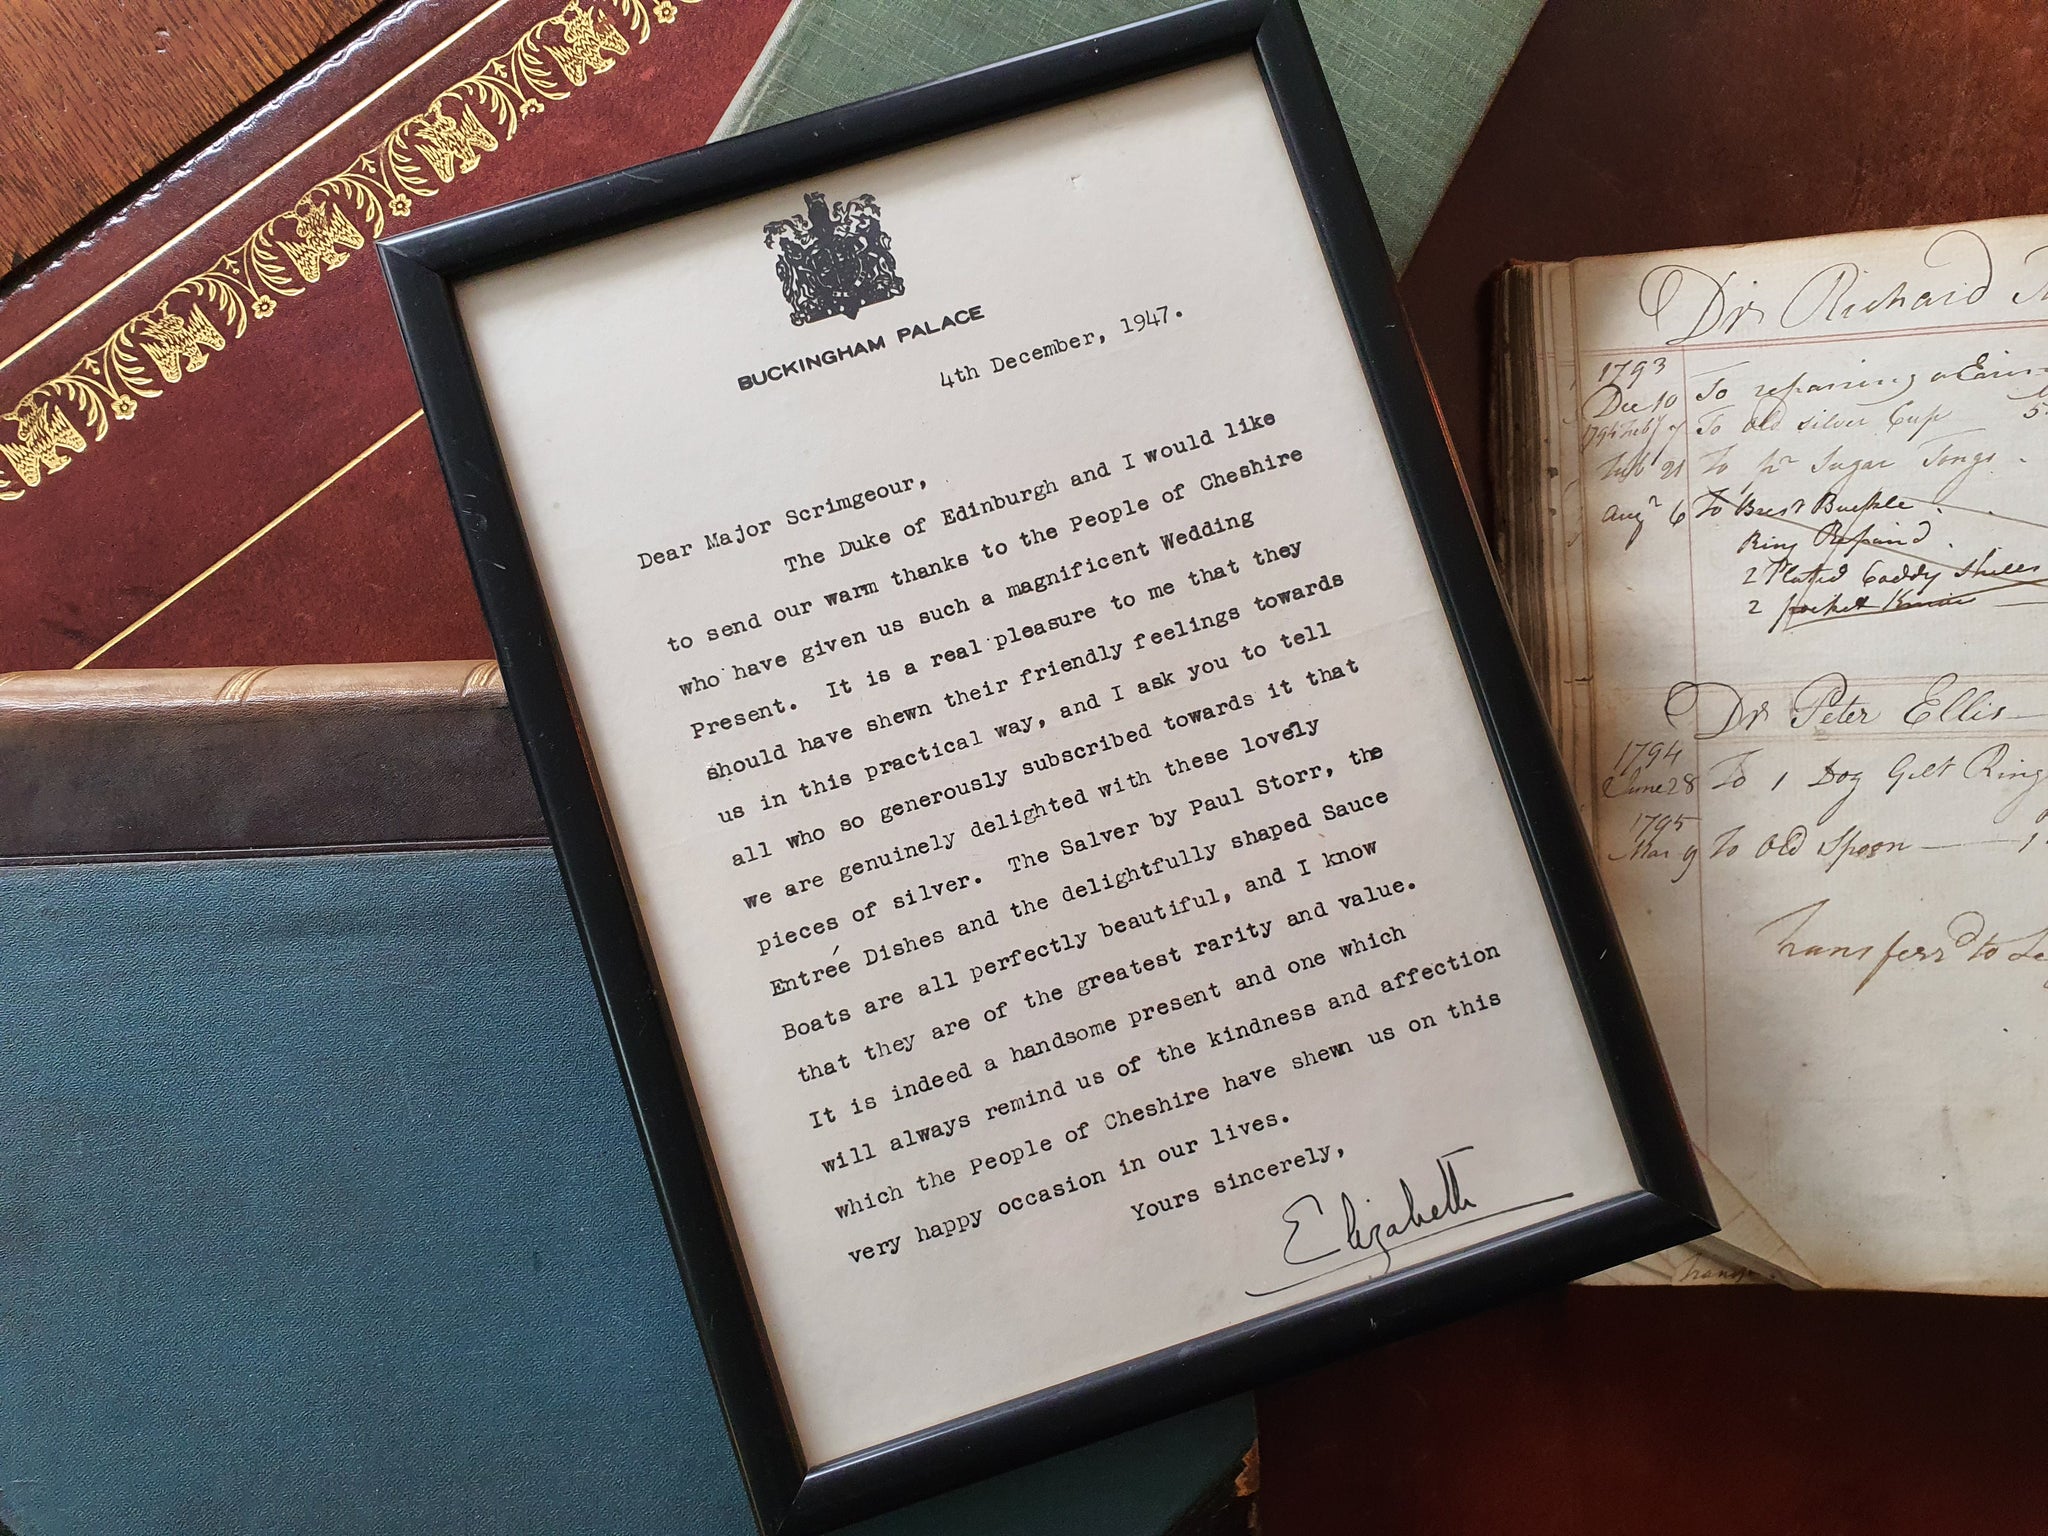 BUCKINGHAM PALACE
4th December, 1947.
Dear Major Scrimgeour,
The Duke of Edinburgh and I would like
to send our warm thanks to the People of Cheshire
who have given us such a magnificent Wedding
Present. It is a real pleasure to me that they
should have shewn their friendly feelings towards
us in this practical way, and I ask you to tell
all who so generously subscribed towards it that
we are genuinely delighted with these lovely
pieces of silver. The Salver by Paul Storr, the
Entrée Dishes and the delightfully shaped Sauce
Boats are all perfectly beautiful, and I know
that they are of the greatest rarity and value.
It is indeed a handsome present and one which
will always remind us of the kindness and affection
which the People of Cheshire have shewn us on this
very happy occasion in our lives.
Yours sincerely,
Elizabeth
Dr Richard
1793
Dec 10 To repairing
To Old Silver Cup
To pr Sugar Tongs
6 To Brest Buckle
Ring
2 Plated Caddy
2 pocket
Dr Peter Ellis
1794
June 28 To 1 Dog Gilt Ring
1795
Mar 9 To Old Spoon 1
Transferr'd to